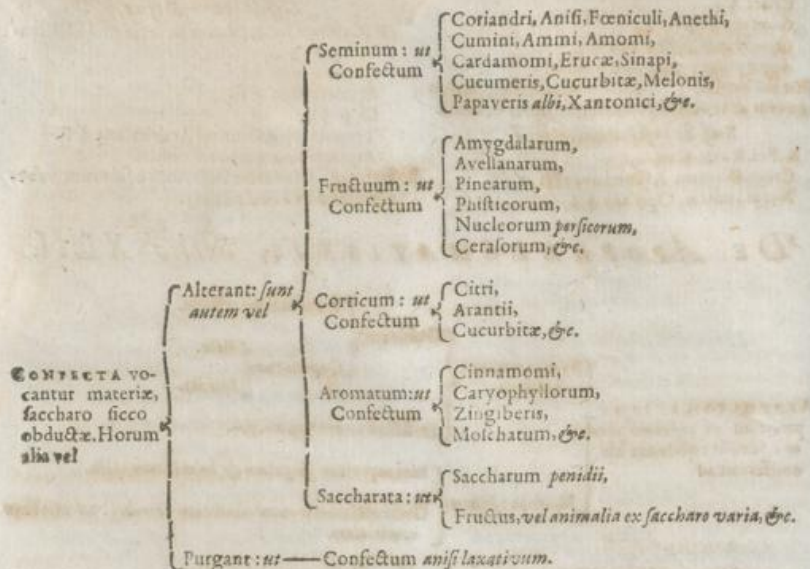 CONFECTA vo-
cantur materiæ,
saccharo sicco
obductæ. Horum
alia vel
Alterant: sunt
autem vel
Seminum: ut
Confectum
Coriandri, Anisi, Fœniculi, Anethi,
Cumini, Ammi, Amomi,
Cardamomi, Erucæ, Sinapi,
Cucumeris, Cucurbitæ, Melonis,
Papaveris albi, Xantonici, &c.
Fructuum: ut
Confectum
Amygdalarum,
Avellanarum,
Pinearum,
Phisticorum,
Nucleorum persicorum,
Cerasorum, &c.
Corticum: ut
Confectum
Citri,
Arantii,
Cucurbitæ, &c.
Aromatum: ut
Confectum
Cinnamomi,
Caryophyllorum,
Zingiberis,
Moschatum, &c.
Saccharata: ut
Saccharum penidii,
Fructus, vel animalia ex saccharo varia, &c.
Purgant: ut — Confectum anisi laxativum.